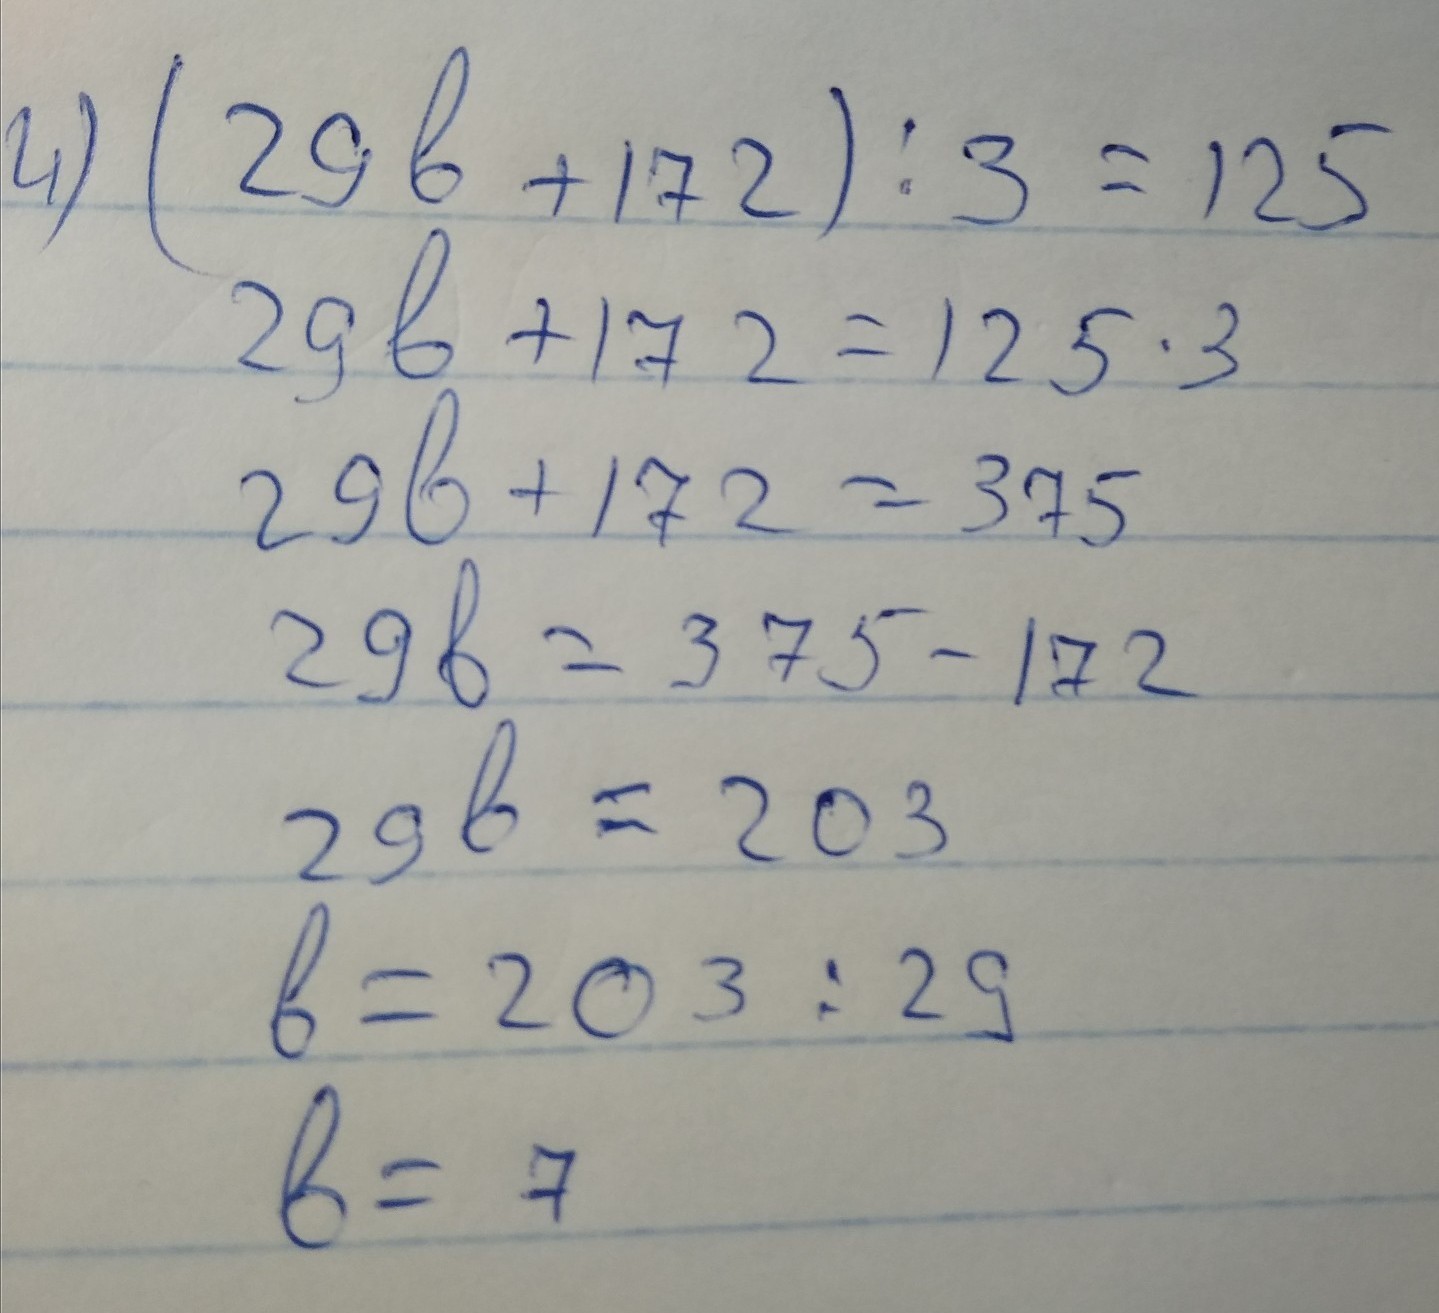 4) (29b + 172) : 3 = 125
29b + 172 = 125 · 3
29b + 172 = 375
29b = 375 - 172
29b = 203
b = 203 : 29
b = 7